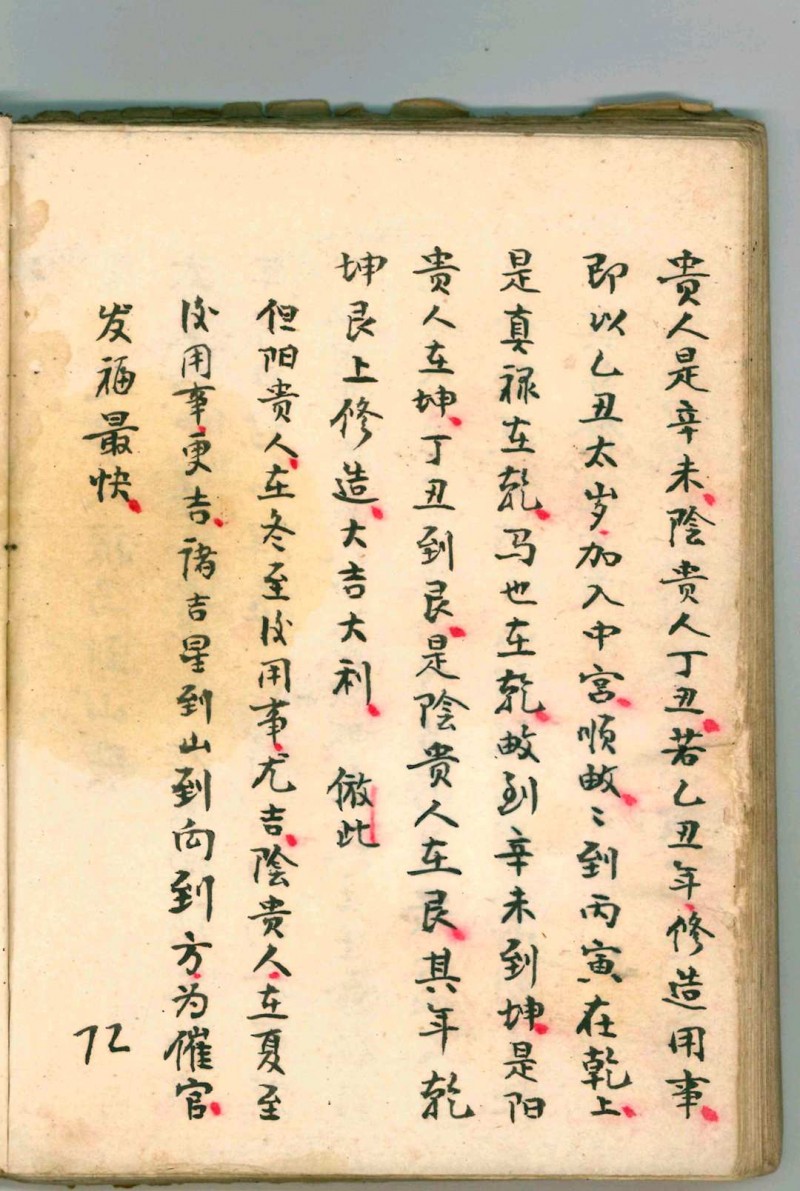 贵人是辛未阴贵人丁丑若乙丑年修造用事
即以乙丑太岁加入中宫顺数々到丙寅在乾上
是真禄在乾马也在乾数到辛未到坤是阳
贵人在坤丁丑到艮是阴贵人在艮其年乾
坤艮上修造大吉大利 倣此
但阳贵人在冬至后用事尤吉阴贵人在夏至
后用事更吉诸吉星到山到向到方为催官
发福最快
72